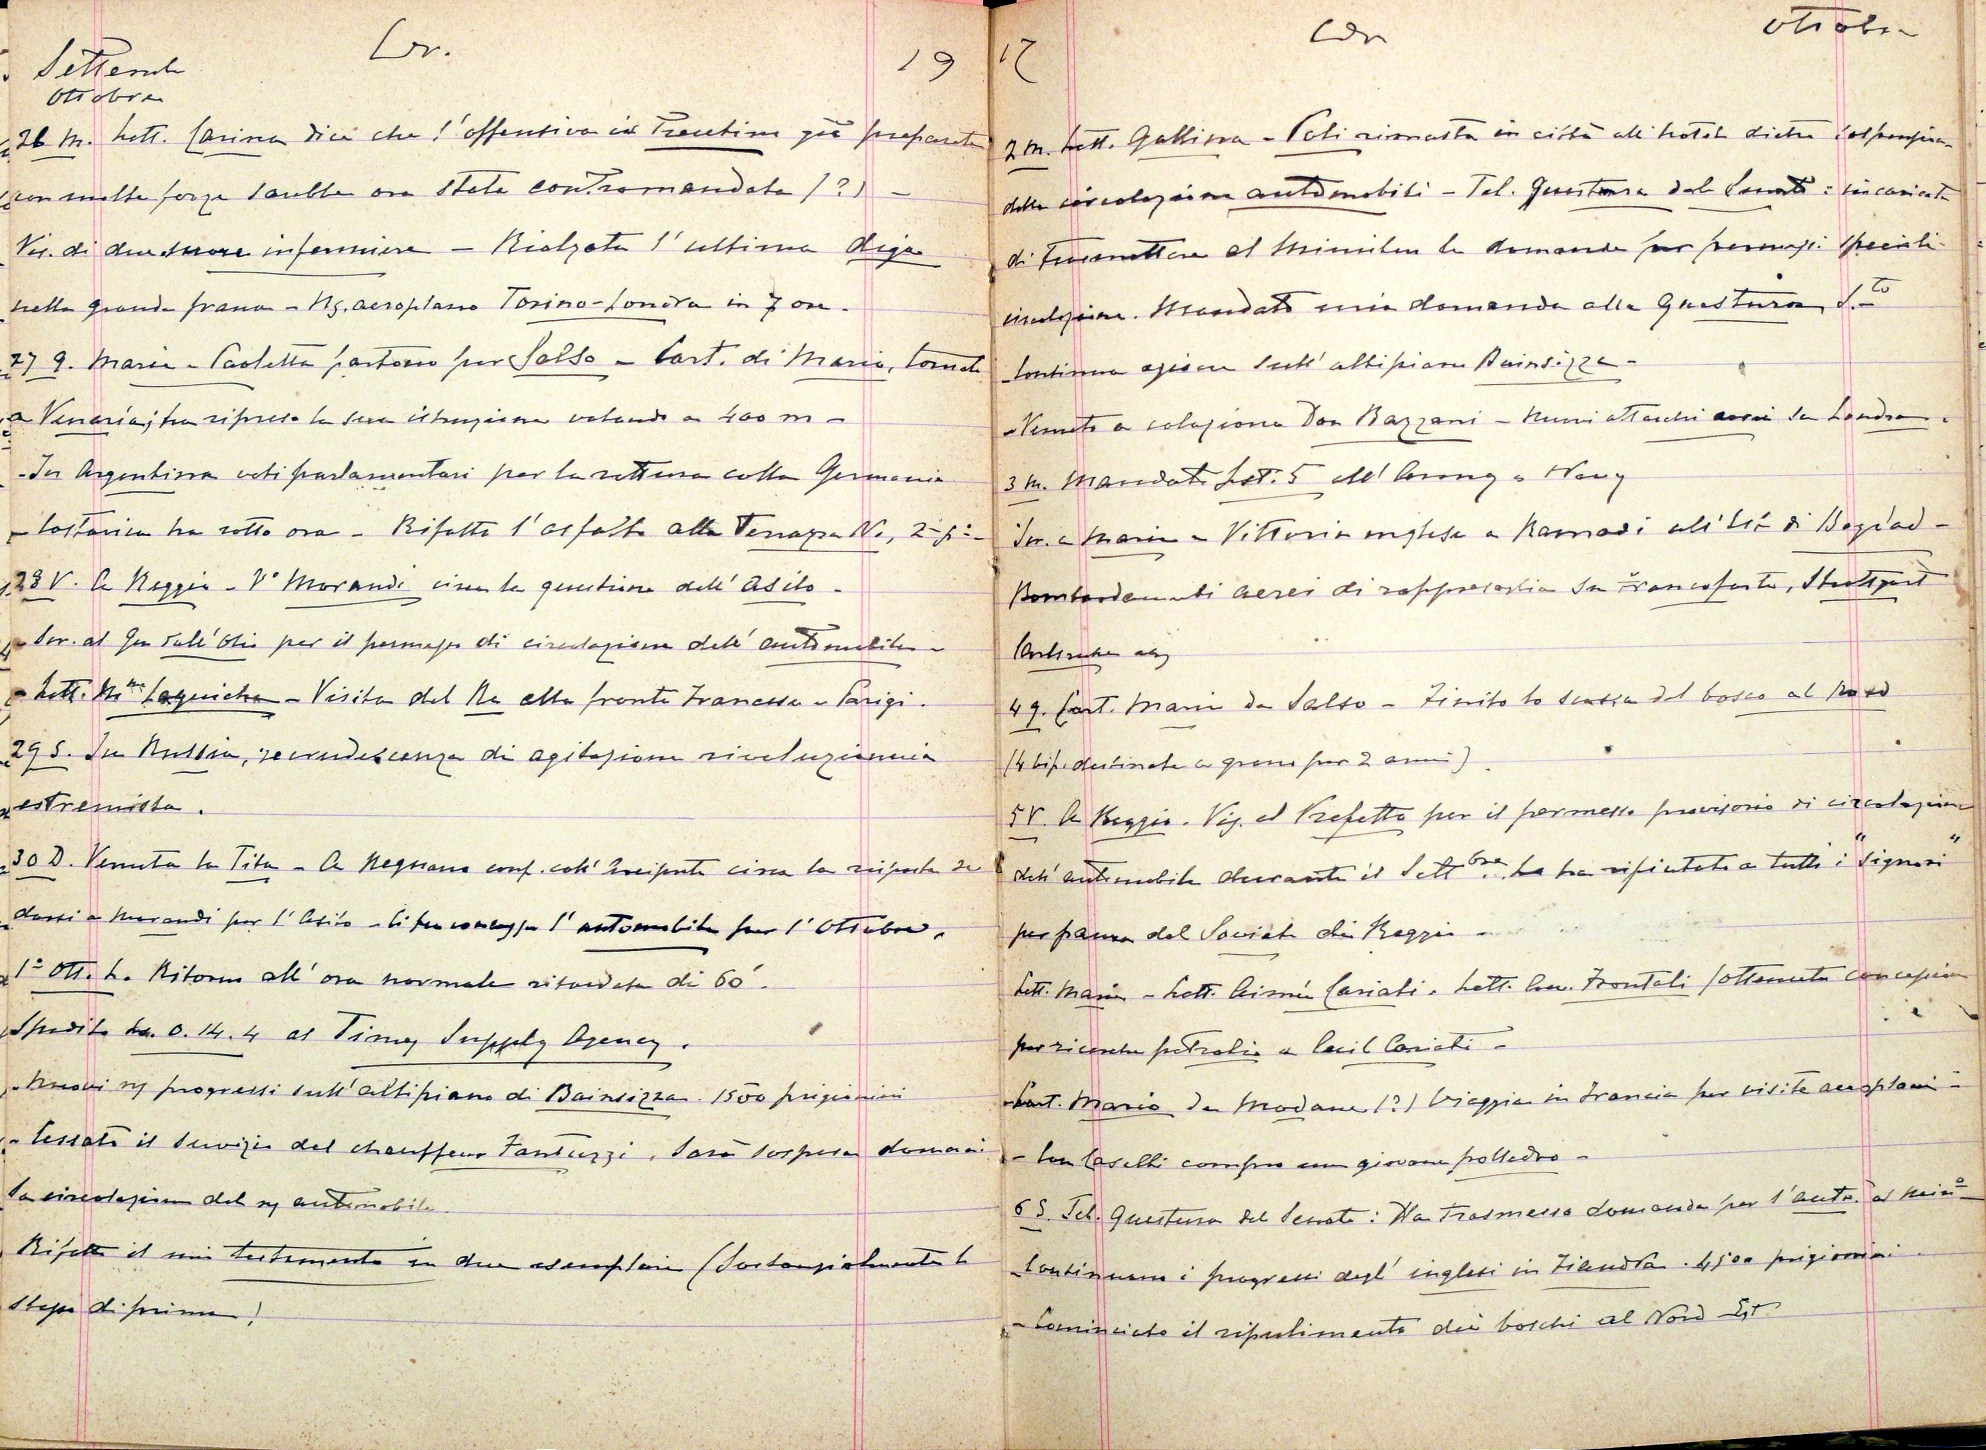 Settembre Cor. 19
Ottobre
26 M. Lett. Carina dice che l'offensiva in Trentino già preparata
con molte forze sarebbe ora stata contromandata (?) -
Vis. di due suore infermiere - Rialzata l'ultima diga
nella grande frana - Ns. aeroplano Torino-Londra in 7 ore.
27 g. Maria e Paoletta partono per Salso - Cart. di Mario, tornato
a Venaria; ha ripreso la sua istruzione volando a 400 m -
- In Argentina voti parlamentari per la rottura colla Germania
- Costarica ha rotto ora - Rifatto l'asfalto alla Terrazza No, 2° p°-
28 V. A Reggio - V° Morandi circa la questione dell'Asilo -
- Scr. al Gen Dall'Olio per il permesso di circolazione dell'automobile -
- Lett. Mme - Visita del Re alla fronte Francese e Parigi.
29 S. In Russia, recrudescenza di agitazione rivoluzionaria
estremista.
30 D. Venuta la Tita - A conf. coll'Arciprete circa la risposta da
darsi a Morandi per l'Asilo - l'automobile per l'Ottobre.
1° Ott. L. Ritorno all'ora normale ritardata di 60'.
Spedito La. 0.14.4 al Times Supply Agency.
- Nuovi ns progressi sull'altipiano di Bainsizza. 1500 prigionieri
- Cessato il servizio del chauffeur Fantuzzi, sarà sospesa domani
la circolazione del ns automobile
Rifatto il mio testamento in due esemplari (Sostanzialmente lo
stesso di prima)
17 Cor Ottobre
2 M. Lett. - rimasta in città all'hotel dietro sospensione
della circolazione automobili - Tel. Questura del Senato: incaricata
di trasmettere al Ministero le domande per permessi speciali
circolazione. Mandato mia domanda alla Questura S.to
- Continua azione sull'altipiano Bainsizza -
- Venuto a colazione Don Bazzani - Nuovi attacchi aerei su Londra.
3 M. Mandato Lst. 5 all'Army & Navy
Scr. a Maria - Vittoria inglese a Ramadi all' di Bagdad -
Bombardamenti aerei di rappresaglia su Francoforte, Stuttgart
Carlsruhe
4 g. Cart. Maria da Salso - Finito lo scasso del bosco al Nord
(4 bif. destinate a grano per 2 anni).
5 V. A Reggio. Vis. al Prefetto per il permesso provisorio di circolazione
dell'automobile durante il Settbre. Lo ha rifiutato a tutti i "Signori"
per paura del Soviet di Reggio -
Lett. Maria - Lett. Aimée Cariati. Lett. Frontali (ottenuta concessione
per ricerche petrolio a Cecil Cariati -
- Cart. Mario da Modane (?) Viaggia in Francia per visite aeroplani -
- Caselli compro un giovane polledro -
6 S. Tel. Questura del Senato: Ha trasmesso domanda per l'auto. al Min°-
- Continuano i progressi degl'inglesi in Fiandra. 4500 prigionieri
- Cominciato il ripulimento dei boschi al Nord Est